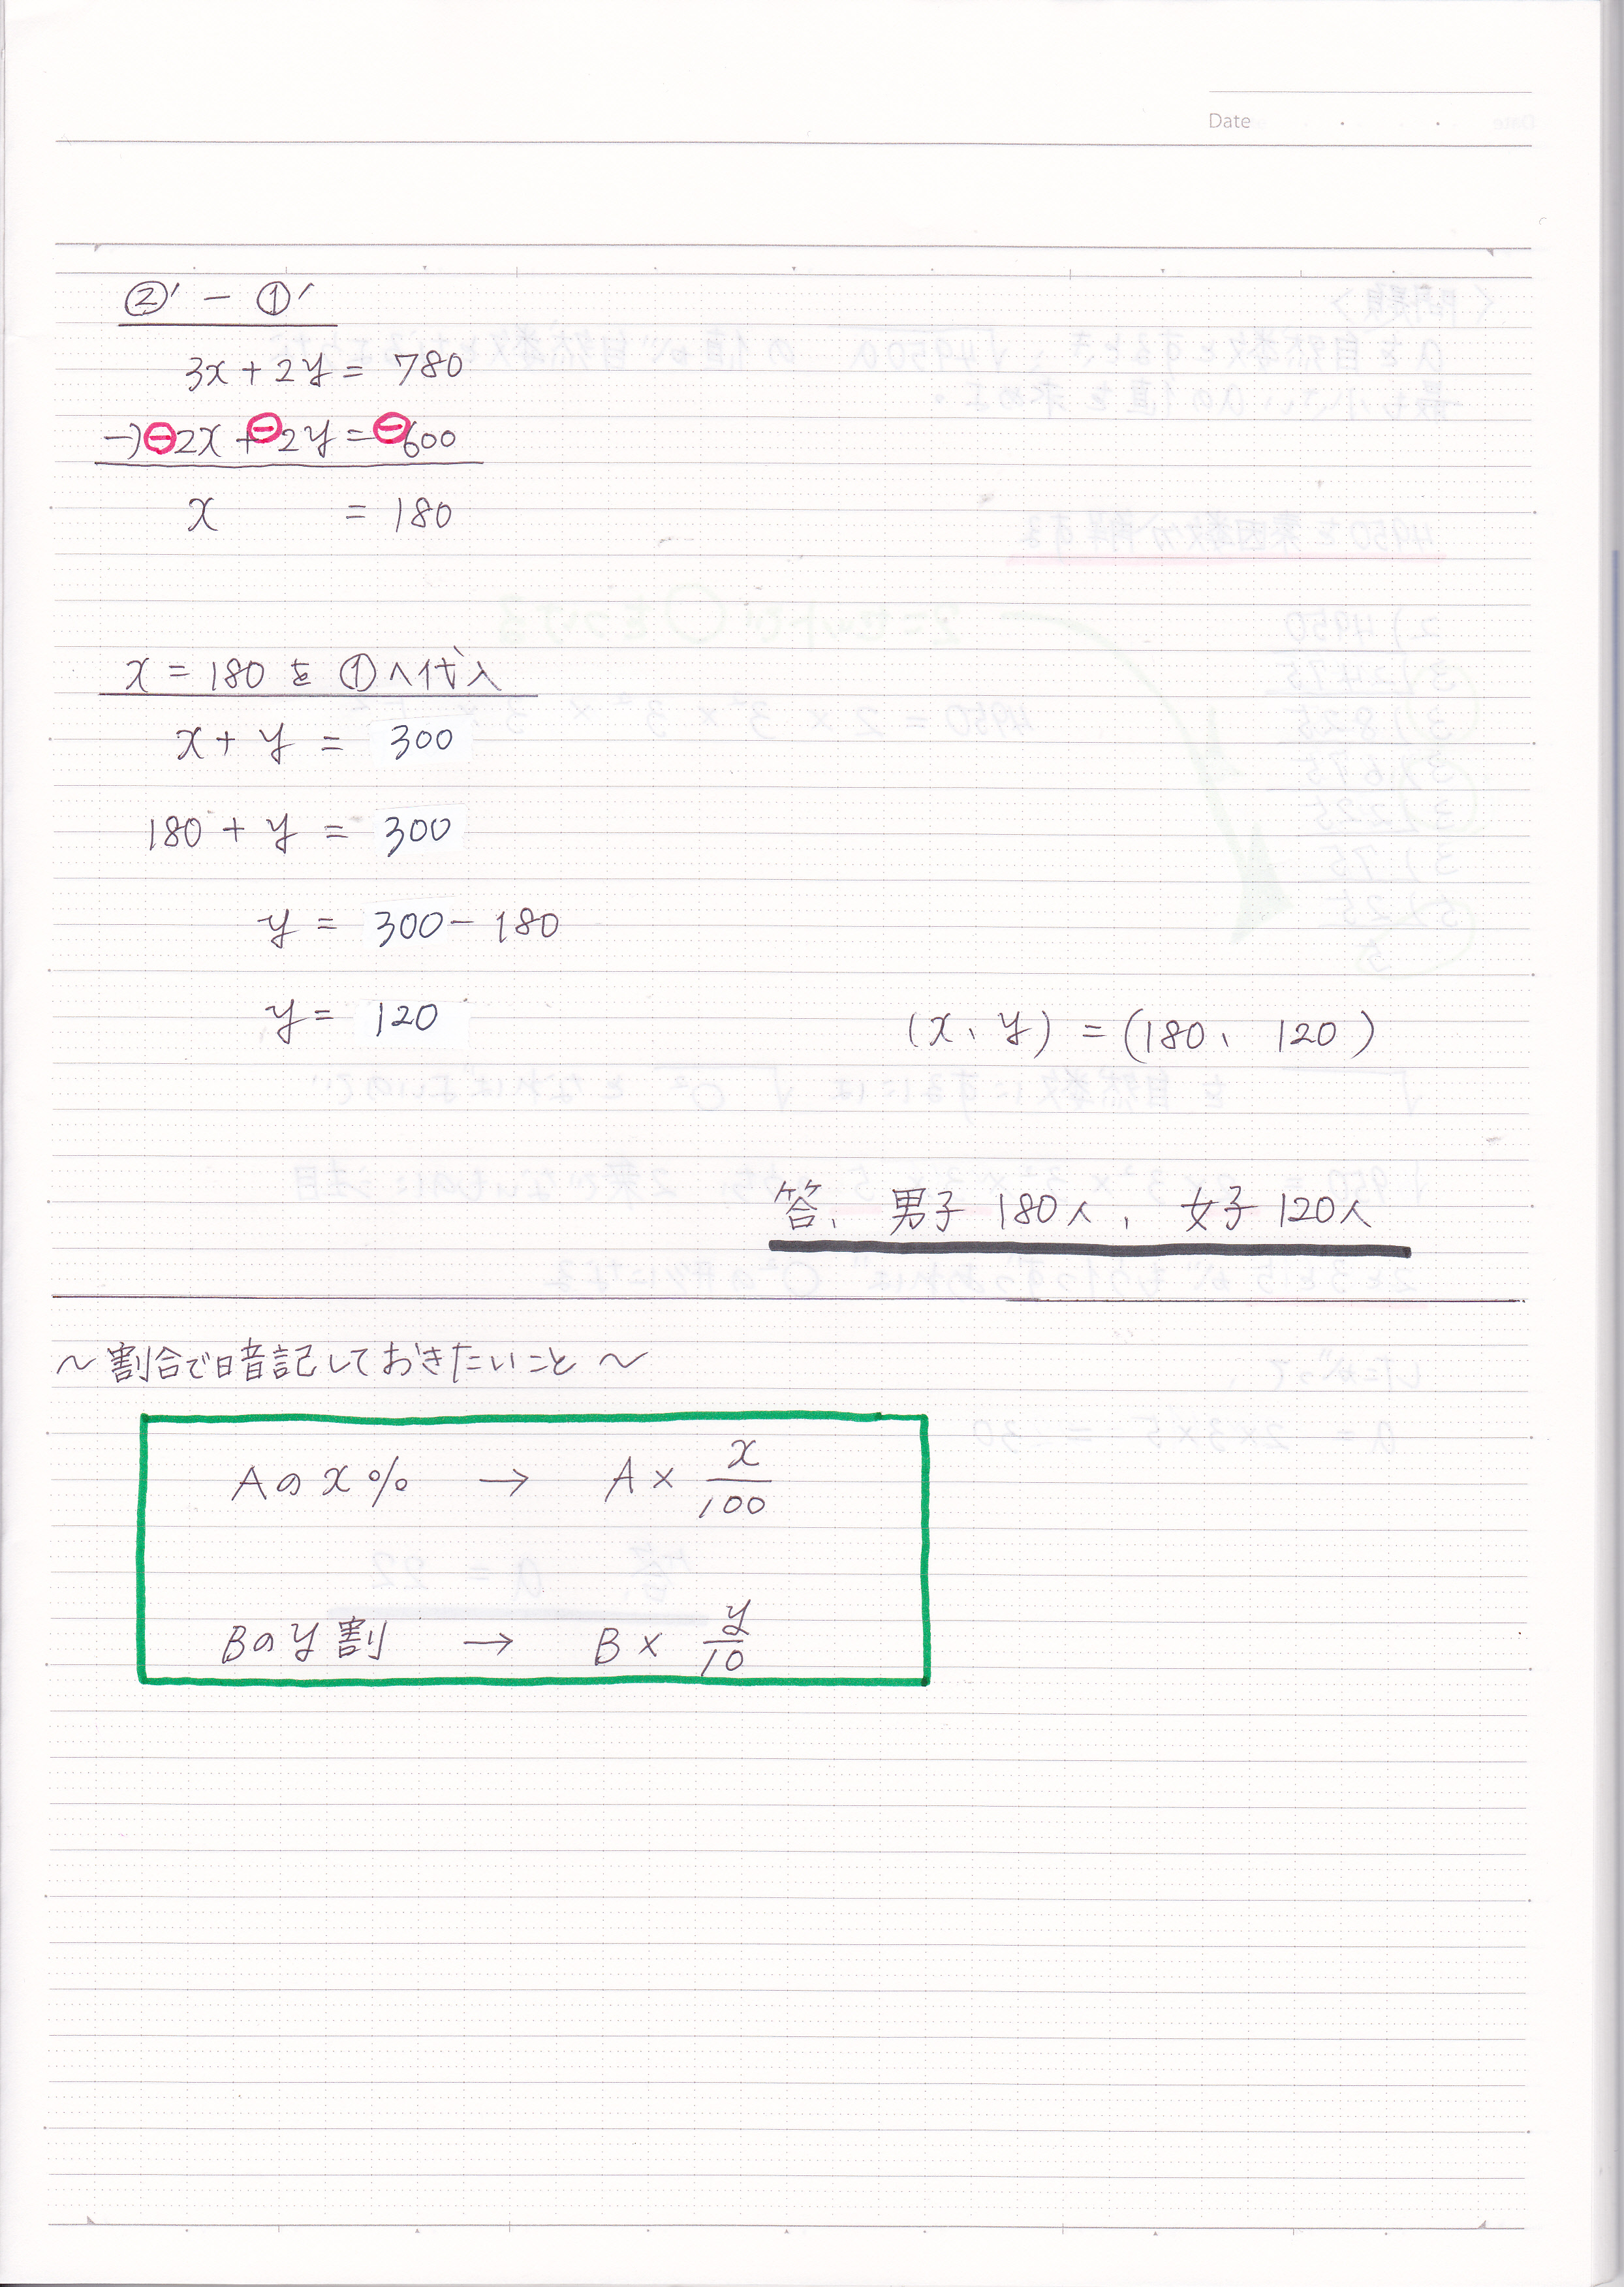 Date
②' - ①'
3x + 2y = 780
-) ⊖2x + ⊖2y = ⊖600
x = 180
x = 180 を ①へ代入
x + y = 300
180 + y = 300
y = 300 - 180
y = 120
(x、y) = (180、120)
答、男子 180人、女子 120人
～割合で暗記しておきたいこと～
Aのx% → A × x/100
Bのy割 → B × y/10